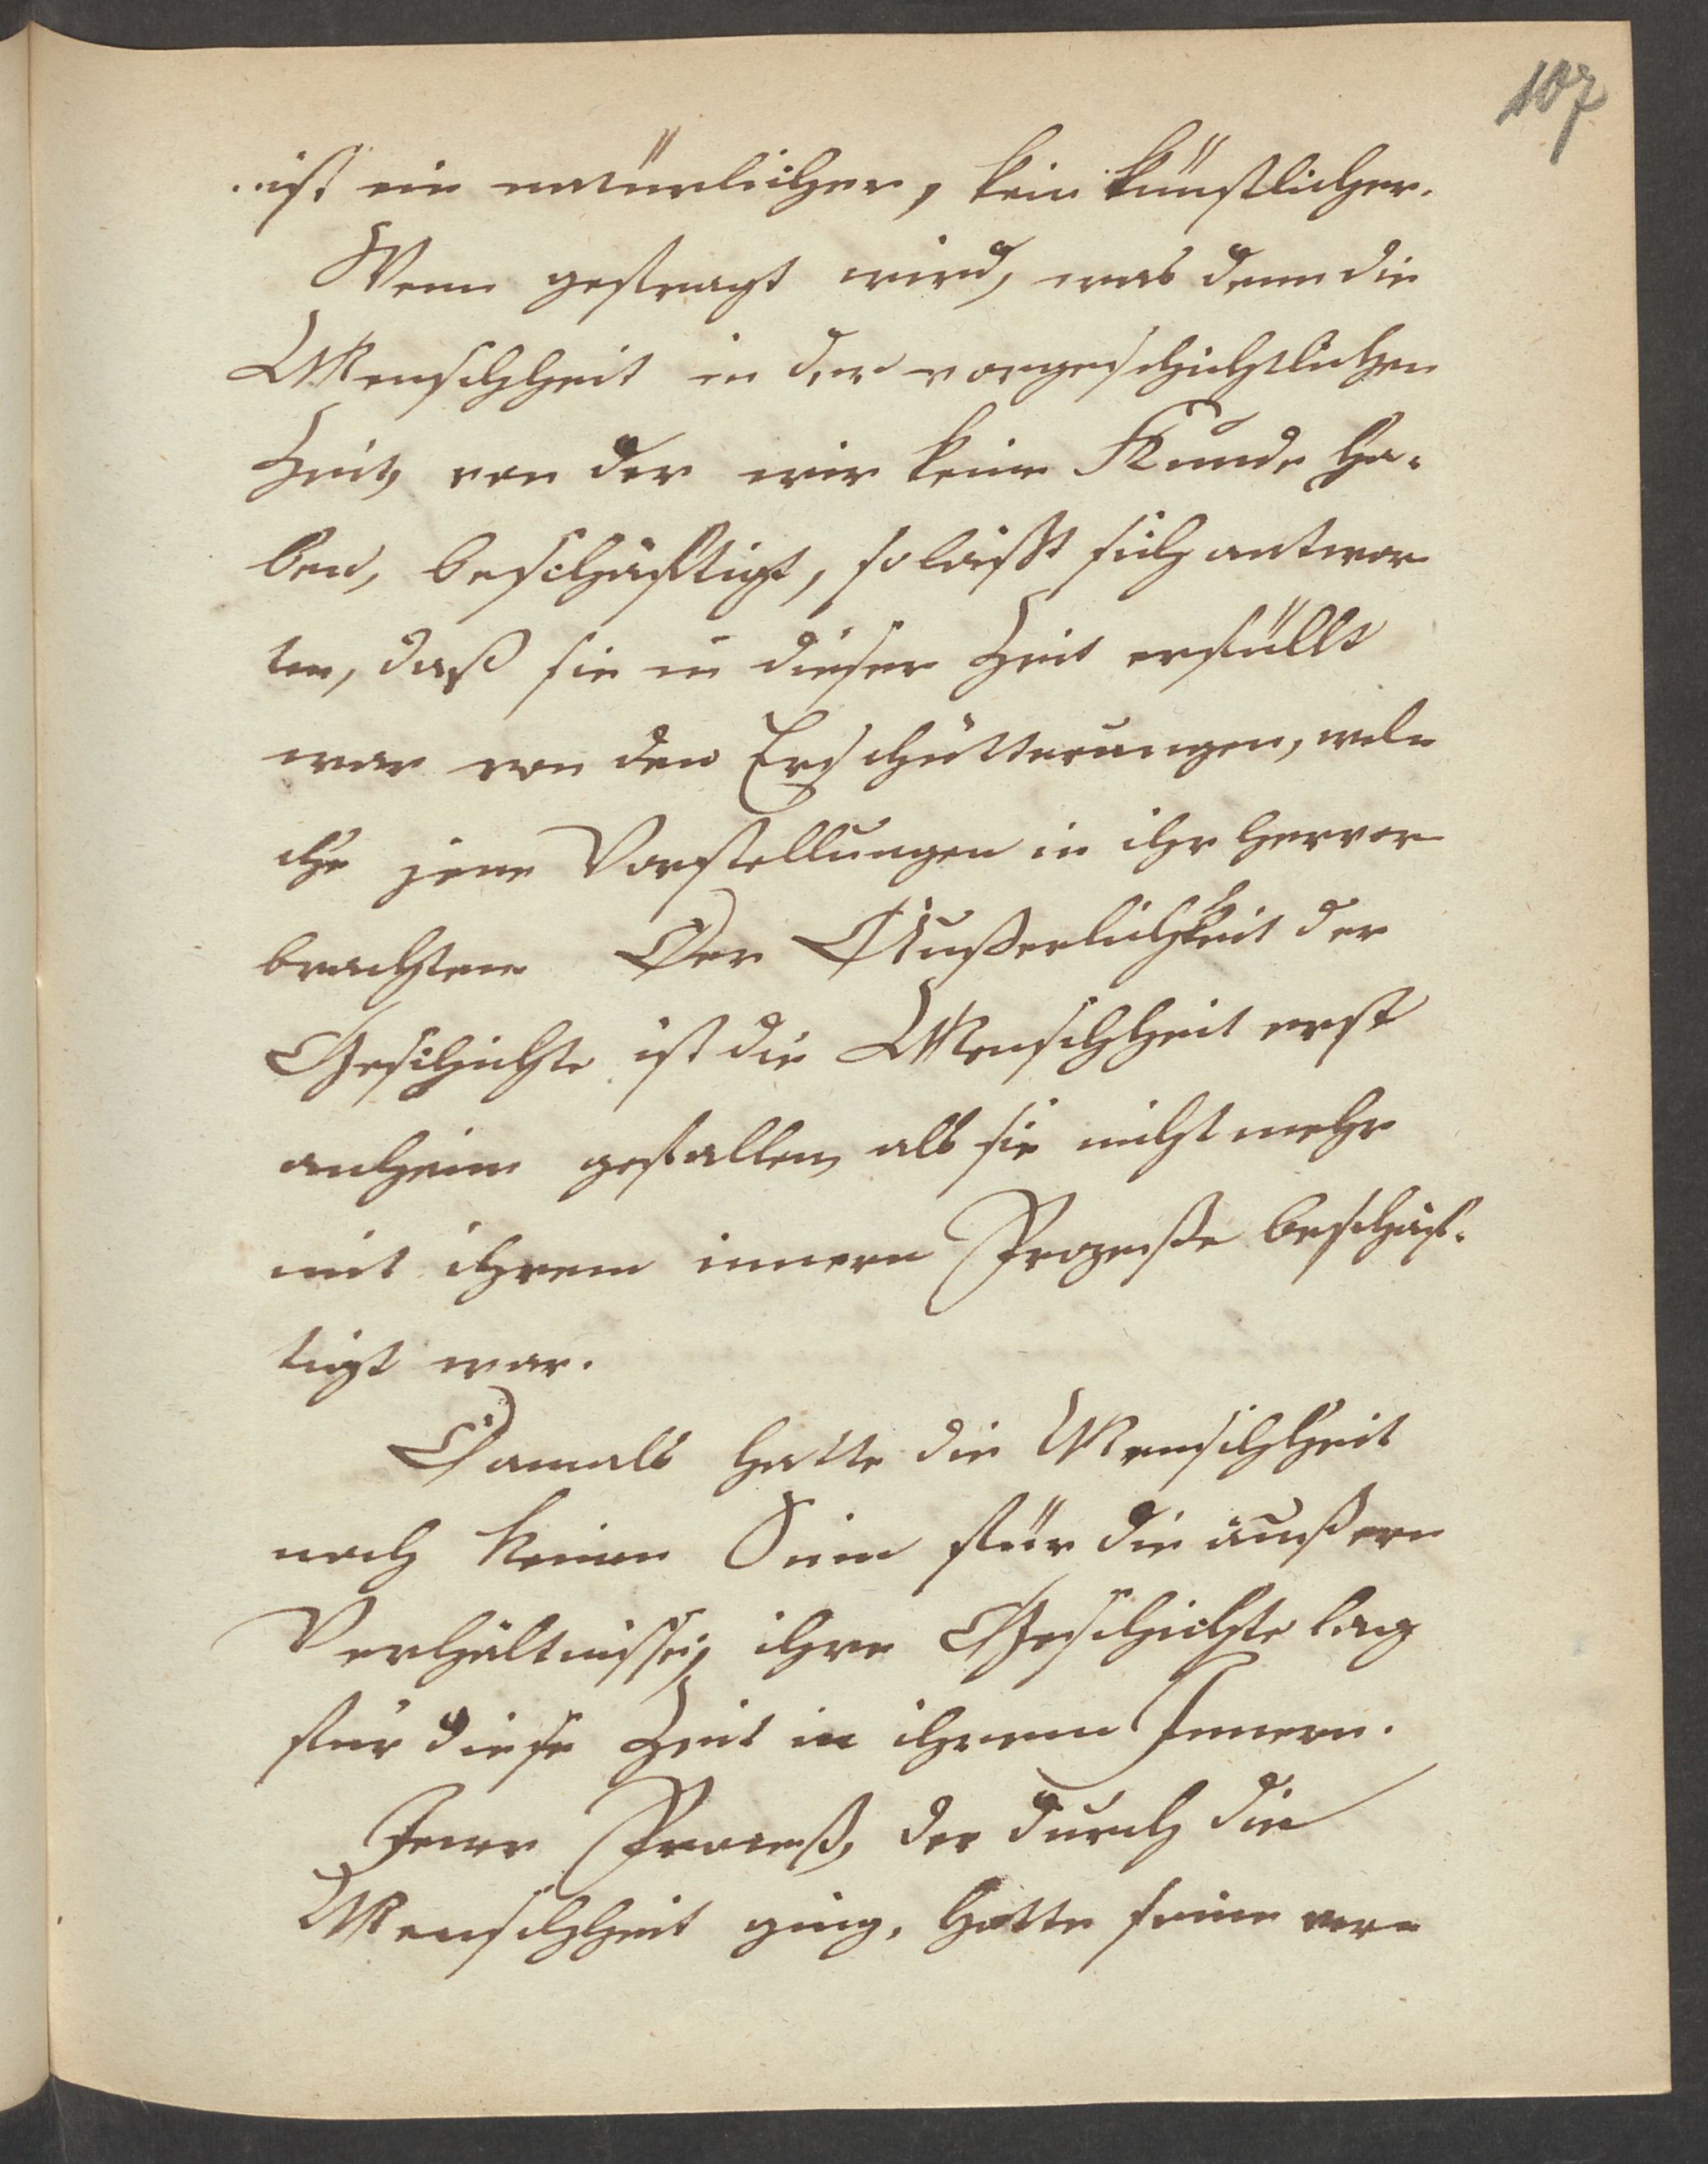 107
ist ein natürlicher, kein künstlicher.
Wenn gefragt wird, was denn die
Menschheit in der vorgeschichtlichen
Zeit, von der wir keine Kunde ha-
ben, beschäftigt, so läßt sich antwor
ten, daß sie in dieser Zeit erfüllt
war von den Erschütterungen, wel-
che jene Vorstellungen in ihr hervor
brachten. Der Äußerlichkeit der
Geschichte ist die Menschheit erst
anheim gefallen, als sie nicht mehr
mit ihrem innern Prozesse beschäf-
tigt war.
Damals hatte die Menschheit
noch keinen Sinn für die äußern
Verhältnisse, ihre Geschichte lag
für diese Zeit in ihrem Innern.
Jener Proceß, der durch die
Menschheit ging, hatte seine ver-